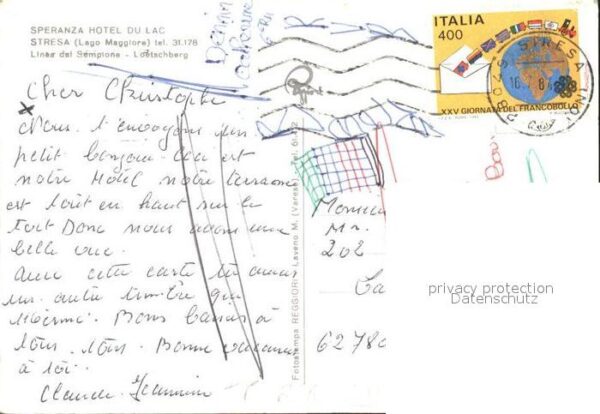 SPERANZA HOTEL DU LAC
STRESA (Lago Maggiore) tel. 31.178
Linea del Sempione - Loetschberg
ITALIA
400
XXV GIORNATA DEL FRANCOBOLLO
STRESA
Cher Christophe
Nous t'envoyons un
petit bonjour. Ceci est
notre Hôtel notre terrasse
est tout en haut sur le
toit Donc nous avons une
belle vue.
Avec cette carte tu auras
un autre timbre
Bons baisers à
tous. Bonne vacances
à toi.
Claude
Fotostampa REGGIORI - Laveno M. (Varese) - Tel.
202
62780
privacy protection
Datenschutz